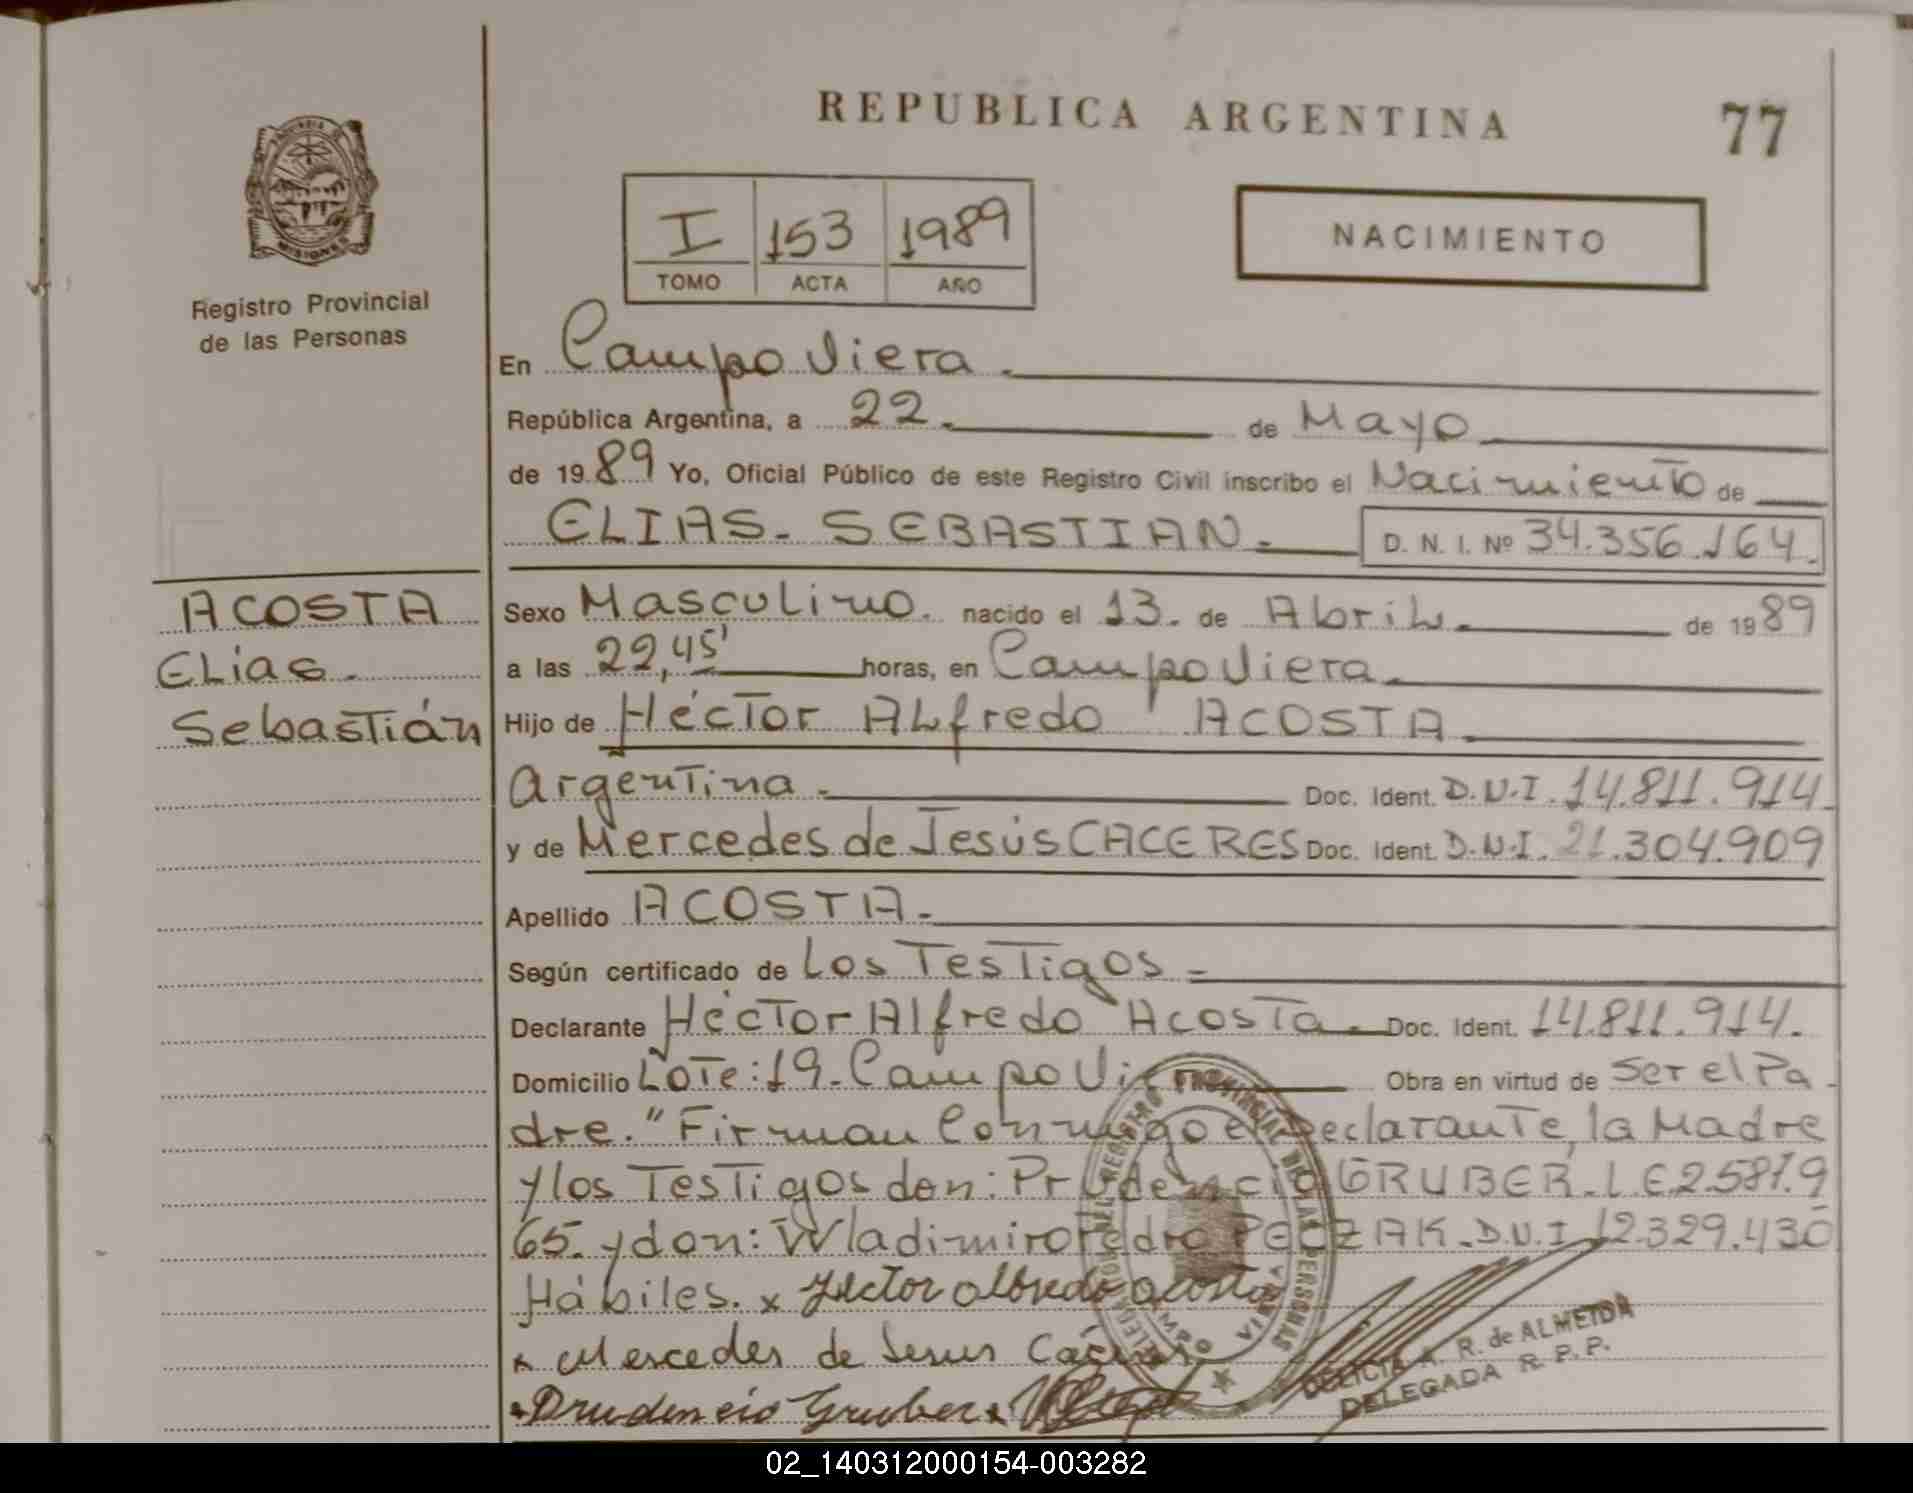 REPUBLICA ARGENTINA
77
PROVINCIA DE
MISIONES
Registro Provincial
de las Personas
I 153 1989
TOMO ACTA AÑO
NACIMIENTO
En Campo Viera.
República Argentina, a 22. de Mayo
de 1989 Yo, Oficial Público de este Registro Civil inscribo el Nacimiento de
ELIAS. SEBASTIAN. D. N. I. Nº 34.356.164.
ACOSTA
Elias.
Sebastián
Sexo Masculino. nacido el 13. de Abril. de 1989
a las 22,45' horas, en Campo Viera.
Hijo de Héctor Alfredo ACOSTA.
Argentina. Doc. Ident. D.N.I. 14.811.914.
y de Mercedes de Jesús CACERES Doc. Ident. D.N.I. 21.304.909
Apellido ACOSTA.
Según certificado de Los Testigos.
Declarante Héctor Alfredo Acosta. Doc. Ident. 14.811.914.
Domicilio Lote: 19. Campo Obra en virtud de Ser el Pa
dre." Firman Conmigo el Declarante, la Madre
y los Testigos don: Prudencio GRUBER. L.E 2.581.9
65. y don: Wladimiro Pedro D.N.I 12.329.430
Hábiles. x Hector Alfredo Acosta
x Mercedes de Jesus Cáceres
x Prudencio Gruber x
DELEGACION DEL REGISTRO PROVINCIAL DE LAS PERSONAS
CAMPO VIERA
DELICIA A. R. de ALMEIDA
DELEGADA R. P. P.
02_140312000154-003282